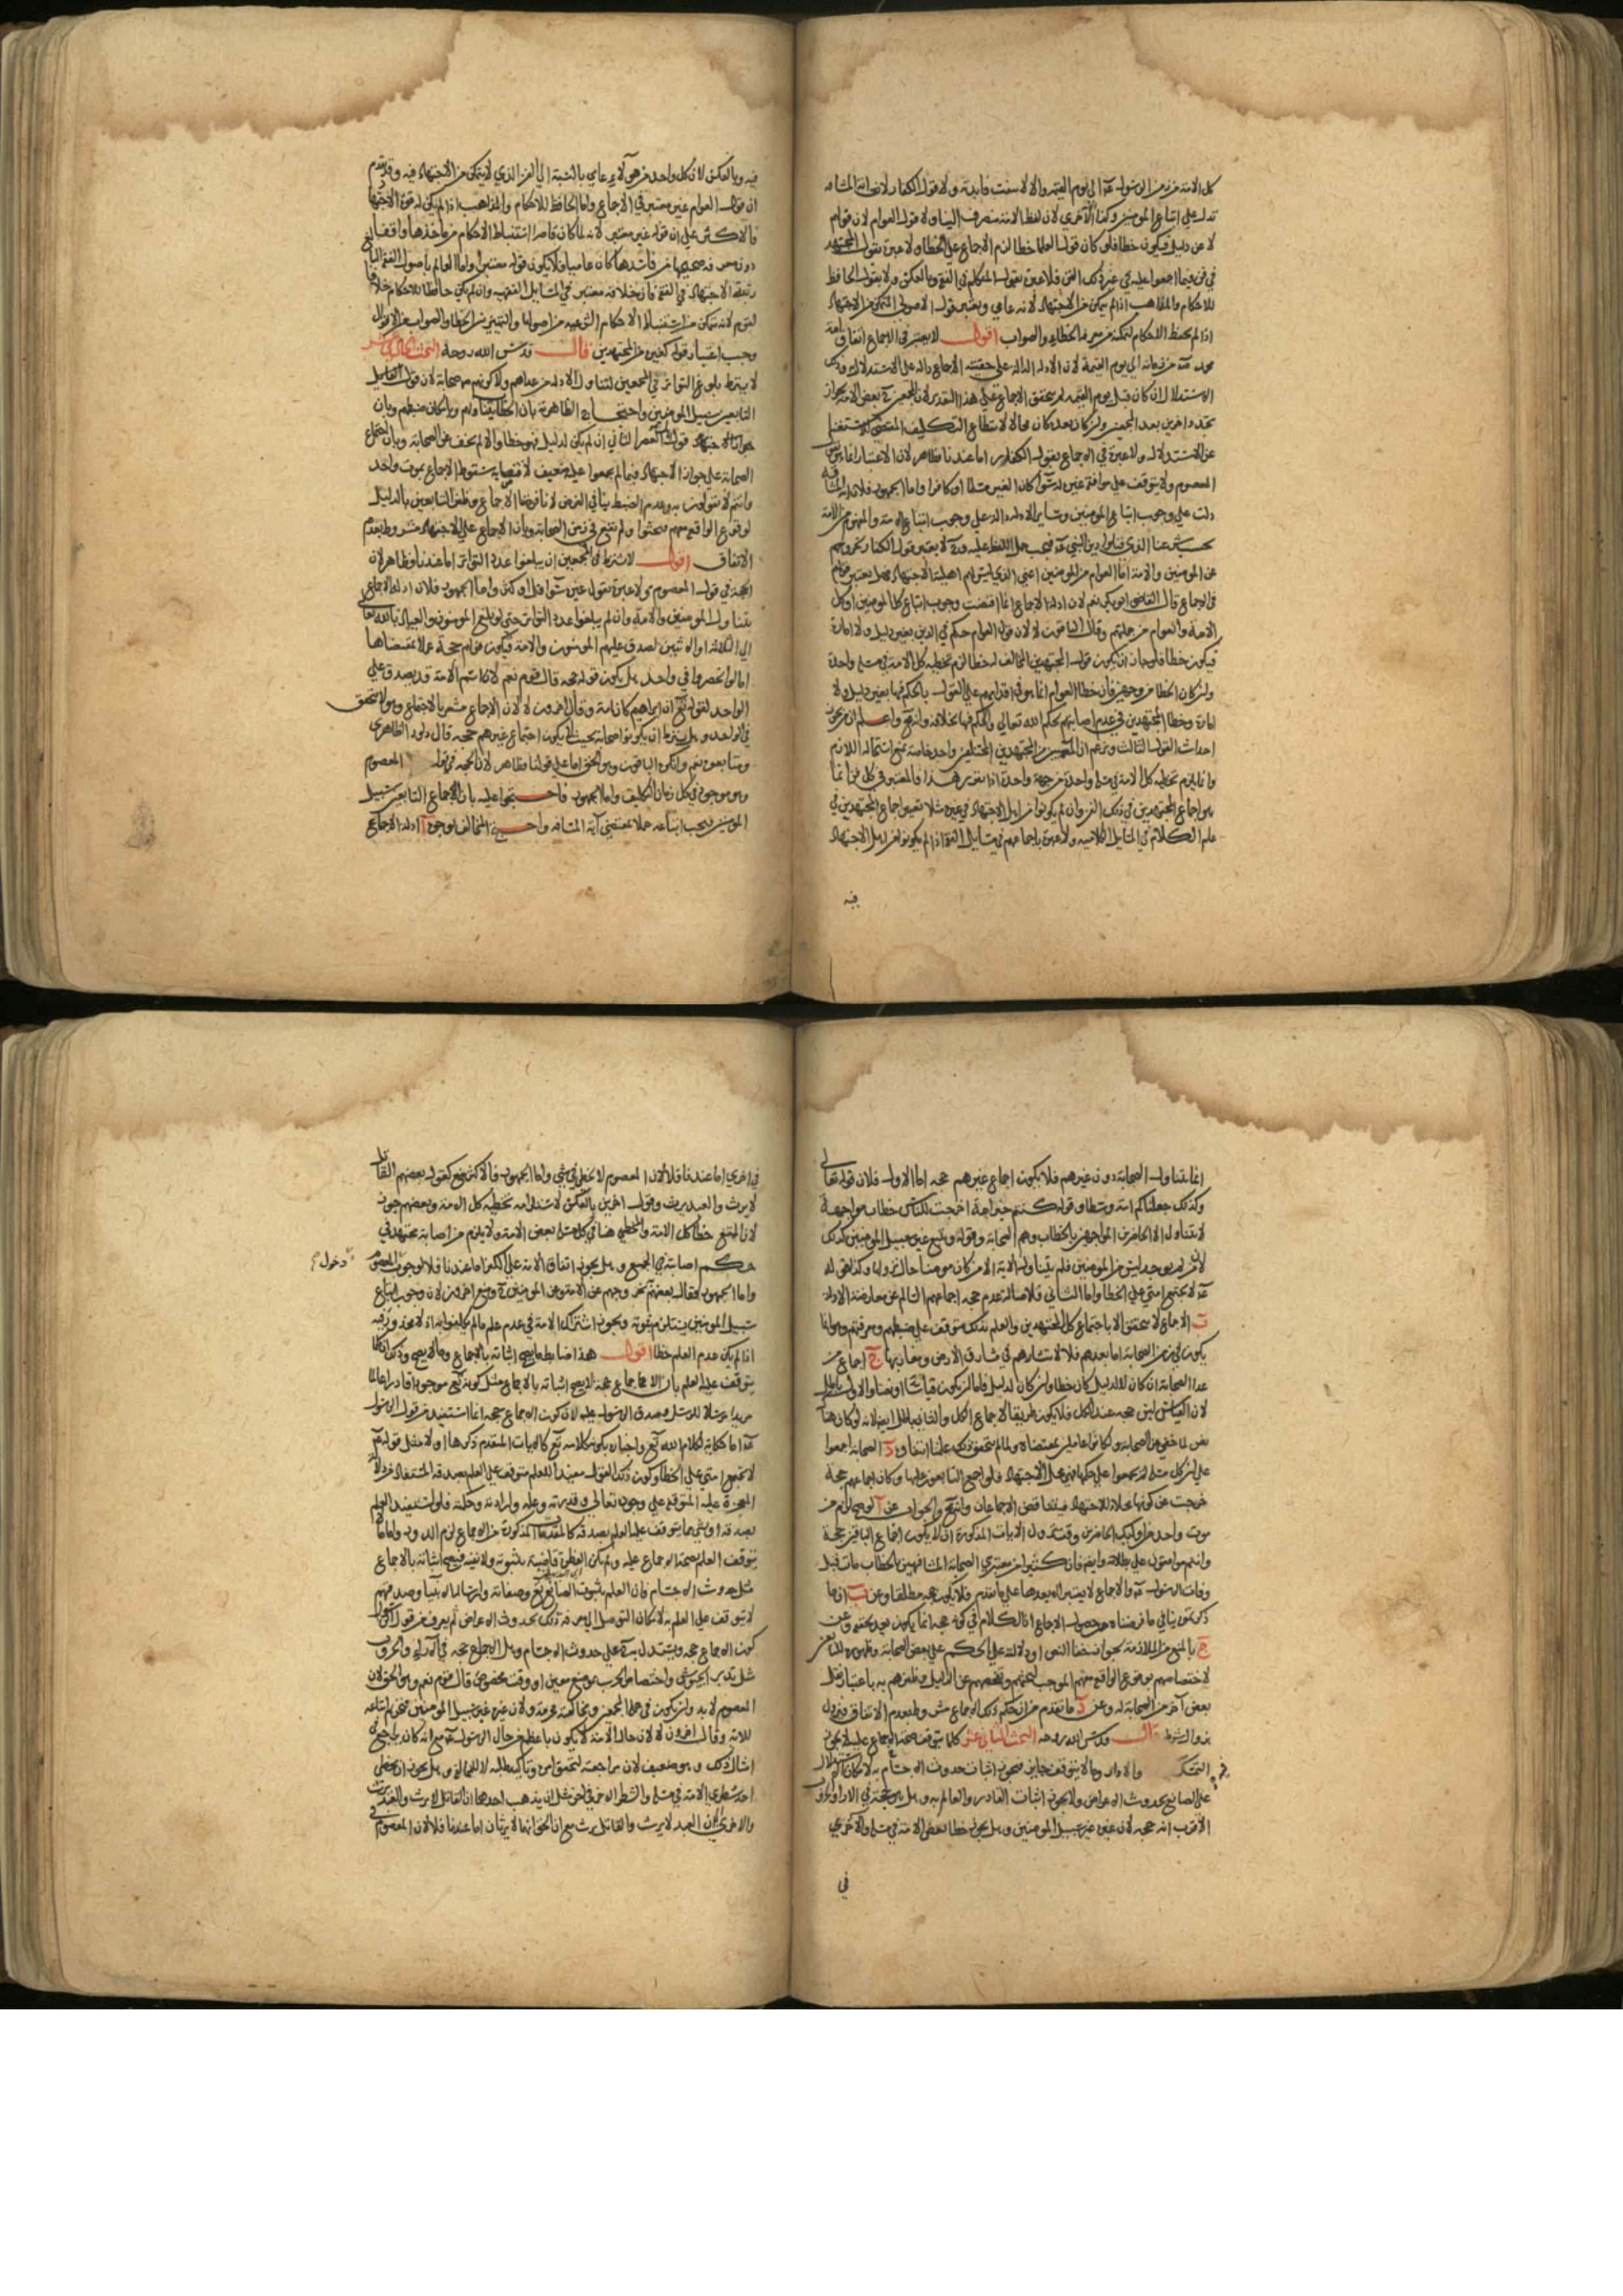 كل الامة من زمن الرسول عم الى يوم القيمة والا لانتفت فايدته ولا قول الكفار لان آية المشاقة
تدل على اتباع المومنين وكذا الاخرى لان لفظ الامة ينصرف الينا ولا قول العوام لان قولهم
لا عن دليل فيكون خطا فلو كان قول العلما خطا لزم الاجماع على الخطا ولا عبرة بقول المجتهد
في فن فيما اجمعوا عليه في غير ذلك الفن فلا عبرة بقول المتكلم في الفقه وبالعكس ولا بقول الحافظ
للاحكام والمذاهب اذا لم يتمكن من الاجتهاد لانه عامي ويعتبر قول الاصولي المتمكن من الاجتهاد
اذا لم يحفظ الاحكام لتمكنه من معرفة الخطاء والصواب اقول لا يعتبر في الاجماع اتفاق امة
محمد عم من زمانه الى يوم القيمة لان الادلة الدالة على حقية الاجماع دالة على الاستدلال به وذلك
الاستدلال ان كان قبل يوم القيمة لم يتحقق الاجماع على هذا التقدير لان المجمعين بعض الامة لجواز
تجدد اخرين بعد المجمعين وان كان بعده كان محالا لانقطاع التكليف المقتضي للاستغناء
عن الاستدلال ولا عبرة في الاجماع بقول الكفار اما عندنا فظاهر لان الاعتبار انما هو بقول
المعصوم ولا يتوقف على موافقة غيره له سواء كان الغير مسلما او كافرا واما الجمهور فلان آية المشاقة
دلت على وجوب اتباع المومنين وساير الادلة دالة على وجوب اتباع الامة والمفهوم من الامة
عن المومنين والامة اما العوام من المومنين اعني الذي ليس لهم اهلية الاجتهاد فهل يعتبر قولهم
في الاجماع قال القاضي ابو بكر نعم لان ادلة الاجماع انما اقتضت وجوب اتباع كل المومنين او كل
الامة والعوام من جملتهم وقال الباقون لا لان قول العوام حكم في الدين بغير دليل ولا امارة
فيكون خطا فلو جاز ان يكون قول المجتهدين المخالف له خطا لزم تخطية كل الامة في مسلة واحدة
وان كان الخطا من وجهين فان خطا العوام انما هو في اقدامهم على القول بالحكم فيها بغير دليل ولا
امارة وخطا المجتهدين في عدم اصابتهم لحكم الله تعالى والحكم فيها بخلافه
احداث القول الثالث
وانما يلزم تخطية كل الامة في مسلة واحدة من جهة واحدة اذا تقرر هذا فالمعتبر في كل فن انما
هو اجماع المجتهدين في ذلك الفن وان لم يكونوا من اهل الاجتهاد في غيره مثلا يعتبر اجماع المجتهدين في
علم الكلام في المسايل الكلامية ولا عبرة باجماعهم في مسايل الفقه اذا لم يكونوا من اهل الاجتهاد
فيه
فيه وبالعكس لان كل واحد من هولاء عامي بالنسبة الى الفن الذي لا يتمكن من الاجتهاد فيه وقد تقدم
ان قول العوام غير معتبر في الاجماع واما الحافظ للاحكام والمذاهب اذا لم يكن له قوة الاجتهاد
فالاكثر على ان قوله غير معتبر لانه لما كان قاصرا استنباط الاحكام من مآخذها
صحيحها من فاسدها كان عاميا فلا يكون قوله معتبرا واما العالم باصول الفقه البالغ
رتبة الاجتهاد في الفقه فان خلافه معتبر في المسايل الفقهية وان لم يكن حافظا للاحكام خلافا
لقوم لانه يتمكن من استنباط الاحكام الشرعية من اصولها والتمييز بين الخطا والصواب من الاقوال
وجب اعتبار قوله كغيره من المجتهدين قال قدس الله روحه البحث الحادي عشر
لا يشترط بلوغ التواتر في المجمعين لتناول الادلة من عداهم ولا كونهم صحابة لان قول
التابعين سبيل المومنين واحتجاج الظاهرية بان الخطاب
قول اهل العصر الثاني ان لم يكن لدليل فهو خطا والا لم يخف عن الصحابة وبان اجماع
الصحابة على جواز الاجتهاد فيما لم يجمعوا عليه ضعيف لاقتضايه سقوط الاجماع بموت واحد
وانتم لا تقولون به وعدم الضبط ينافي الفرض لانا فرضنا الاجماع وظفر التابعين بالدليل
لوقوع الواقعة فيهم فبحثوا ولم تقع في زمن الصحابة وبان الاجماع على الاجتهاد مشروط بعدم
الاتفاق اقول لا يشترط في المجمعين ان يبلغوا عدد التواتر اما عندنا فظاهر لان
الحجة في قول المعصوم ولا عبرة بقول غيره سواء قل او كثر واما الجمهور فلان ادلة الاجماع
يتناول المومنين والامة وان لم يبلغوا عدد التواتر حتى لو بلغ المومنون والعياذ بالله تعالى
الى الثلاثة او الاثنين لصدق عليهم المومنون والامة فيكون قولهم حجة عملا بمقتضاها
اما لو انحصروا في واحد هل يكون قوله حجة قال قوم نعم لان اسم الامة قد يصدق على
الواحد لقوله تع ان ابراهيم كان امة وقال اخرون لا لان الاجماع مشعر بالاجتماع وهو لا يتحقق
في الواحد وهل يشترط ان يكونوا صحابة بحيث لا يكون اجماع غيرهم حجة قال داود الظاهري
ومتابعوه نعم وانكره الباقون وهو الحق اما على قولنا فظاهر لان الحجة في قول المعصوم
وهو موجود في كل زمان التكليف واما الجمهور فاحتجوا عليه بان اجماع التابعين سبيل
المومنين فيجب اتباعه عملا بمقتضى آية المشاقة واحتج المخالف بوجوه آ ادلة الاجماع
انما يتناول الصحابة دون غيرهم فلا يكون اجماع غيرهم حجة اما الاول فلان قوله تعالى
وكذلك جعلناكم امة وسطا وقوله كنتم خير امة اخرجت للناس خطاب مواجهة
لا يتناول الا الحاضرين المواجهين بالخطاب وهم الصحابة وقوله ويتبع غير سبيل المومنين كذلك
لان من لم يوجد ليس من المومنين فلم يتناول الاية الا من كان مومنا حال نزولها وكذا قوله
عم لا يجتمع امتي على الخطا واما الثاني فلاصالة عدم حجية اجماعهم السالم عن معارضة الادلة
ب الاجماع لا يتحقق الا باجتماع كل المجتهدين والعلم بذلك متوقف على ضبطهم ومعرفتهم وهو انما
يكون في زمن الصحابة اما بعدهم فلا لانتشارهم في مشارق الارض ومغاربها ج اجماع من
عدا الصحابة ان كان لا لدليل كان خطا وان كان لدليل فاما ان يكون قياسا او نصا والاول باطل
لان القياس ليس حجة عند الكل فلا يكون طريقا لاجماع الكل والثاني باطل ايضا لانه لو كان هناك
نص لما خفي عن الصحابة ولكانوا عاملين بمقتضاه ولما لم يتحقق ذلك علمنا انتفاءه د الصحابة اجمعوا
على ان كل مسلة لم يجمعوا على حكمها فهي محل الاجتهاد فلو اجمع التابعون عليها وكان اجماعهم حجة
خرجت عن كونها محلا للاجتهاد فيتناقض الاجماعان وانه مح والجواب عن آ لو صح لزم من
موت واحد من اوليك الحاضرين وقت نزول الايات المذكورة ان لا يكون اجماع الباقين حجة
وانتم موافقون على بطلانه وايضا فان كثيرا من معتبري الصحابة المشافهين بالخطاب مات قبل
وفاة الرسول عم والاجماع لا يعتبر الا بعدها على ما تقدم فلا يكون حجة مطلقا وعن ب ان ما
ذكرتموه ينافي ما فرضناه من حصول الاجماع اذ الكلام في كونه حجة انما يكون بعد تحققه وعن
ج بالمنع من الملازمة لجواز خفاء النص او دلالته على الحكم على بعض الصحابة وظهوره للتابعين
لاختصاصهم بوقوع الواقعة فيهم الموجب لبحثهم وتفحصهم عن الدليل وظفرهم به باعتبار نقل
بعض آخر من الصحابة له وعن د ما تقدم من ان حكم ذلك الاجماع مشروط بعدم الاتفاق فيزول
بزوال الشرط قال قدس الله روحه البحث الثاني عشر كلما يتوقف صحة الاجماع عليه لا يجوز
التمسك والا دار وما لا يتوقف جايز فيجوز اثبات حدوث الاجسام به لامكان الاستدلال
على الصانع بحدوث الاعراض ولا يجوز اثبات القادر والعالم به وهل هو حجة في الاراء والحروب
الاقرب انه حجة لان غيره غير سبيل المومنين وهل يجوز خطا بعض الامة في مسلة والاخرى
في
في اخرى اما عندنا فلا لان المعصوم لا يخطي في شي واما الجمهور فالاكثر منع كقول بعضهم القاتل
لا يرث والعبد يرث وقول اخرين بالعكس لاستلزامه تخطية كل الامة وبعضهم جوزه
لان الممتنع خطا كل الامة والمخطي هنا في كل مسلة بعض الامة ولا يلزم من اصابة مجتهد في
حكم اصابته في الجميع وهل يجوز اتفاق الامة على الكفر اما عندنا فلا لوجوب دخول المعصوم
واما الجمهور فقال بعضهم لخروجهم عن الامة وعن المومنين ح ومنع اخرون لان وجوب اتباع
سبيل المومنين يستلزم ثبوته ويجوز اشتراك الامة في عدم علم ما لم يكلفوا به اذ لا محذور فيه
اذا لم يكن عدم العلم خطا اقول هذا ضابط ما يصح اثباته بالاجماع وما لا يصح وذلك ان كلما
يتوقف عليه العلم بان الاجماع حجة لا يصح اثباته بالاجماع مثل كونه تع موجودا قادرا عالما
مريدا مرسلا للرسل وصدق الرسول عليه لان كون الاجماع حجة انما استفيد من قول الرسول
عم اما حكاية لكلام الله تع واخباره بكونه كلامه تع كالايات المتقدم ذكرها او لا مثل قوله عم
لا تجتمع امتي على الخطا وكون ذلك القول مفيدا للعلم متوقف على العلم بصدقه المستفاد من دلالة
المعجزة عليه المتوقفة على وجوده تعالى وقدرته وعلمه وارادته وحكمته فلو استفيد العلم
بصدقه او بشي مما يتوقف عليه العلم بصدقه كالمقدمات المذكورة من الاجماع لزم الدور واما ما لا
يتوقف العلم بصحة الاجماع عليه ولم يكن العقل قاضيا بثبوته ولا نفيه فيصح اثباته بالاجماع
مثل حدوث الاجسام فان العلم بثبوت الصانع تع وصفاته وارساله الانبيا وصدقهم
لا يتوقف على العلم به لامكان التوصل الى معرفة ذلك بحدوث الاعراض ثم يعرف من قول الرسول
كون الاجماع حجة ويستدل به على حدوث الاجسام وهل الاجماع حجة في الاراء والحروب
مثل تدبير الجيوش واختصاص الحرب بموضع معين او وقت مخصوص قال قوم نعم وهو الحق لان
المعصوم لا بد وان يكون في جملة المجمعين ومخالفته محرمة ولان غيره غير سبيل المومنين فيحرم اتباعه
للاية وقال اخرون لا لان حال الامة لا يكون باعظم من حال الرسول عم مع انه كان يراجع في
امثال ذلك وهو ضعيف لان مراجعته لتحقيق امره وتاكيد طلبه لا للمخالفة وهل يجوز ان يخطي
احد شطري الامة في مسلة والشطر الاخر في اخرى مثل ان يذهب احدهما ان القاتل لا يرث والعبد يرث
والاخر الى ان العبد لا يرث والقاتل يرث مع ان الحق انهما لا يرثان اما عندنا فلا لان المعصوم في
دخول